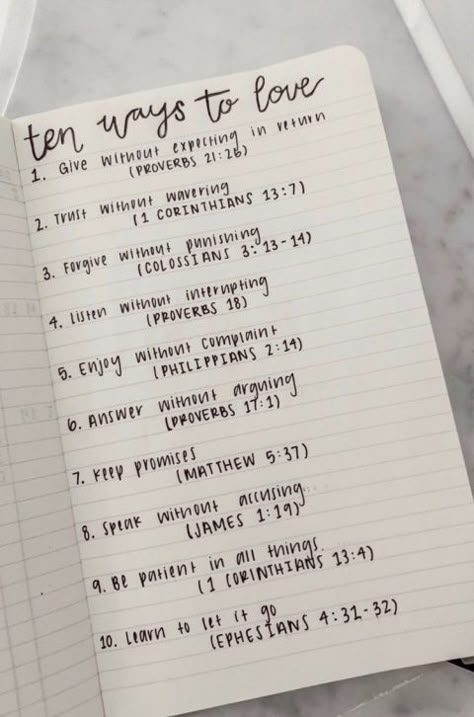 ten ways to love
1. Give without expecting in return
(PROVERBS 21:26)
2. Trust without wavering
(1 CORINTHIANS 13:7)
3. Forgive without punishing
(COLOSSIANS 3:13-14)
4. Listen without interupting
(PROVERBS 18)
5. Enjoy without complaint
(PHILIPPIANS 2:14)
6. Answer without arguing
(PROVERBS 17:1)
7. Keep promises
(MATTHEW 5:37)
8. Speak without accusing.
(JAMES 1:19)
9. Be patient in all things.
(1 CORINTHIANS 13:4)
10. Learn to let it go
(EPHESIANS 4:31-32)